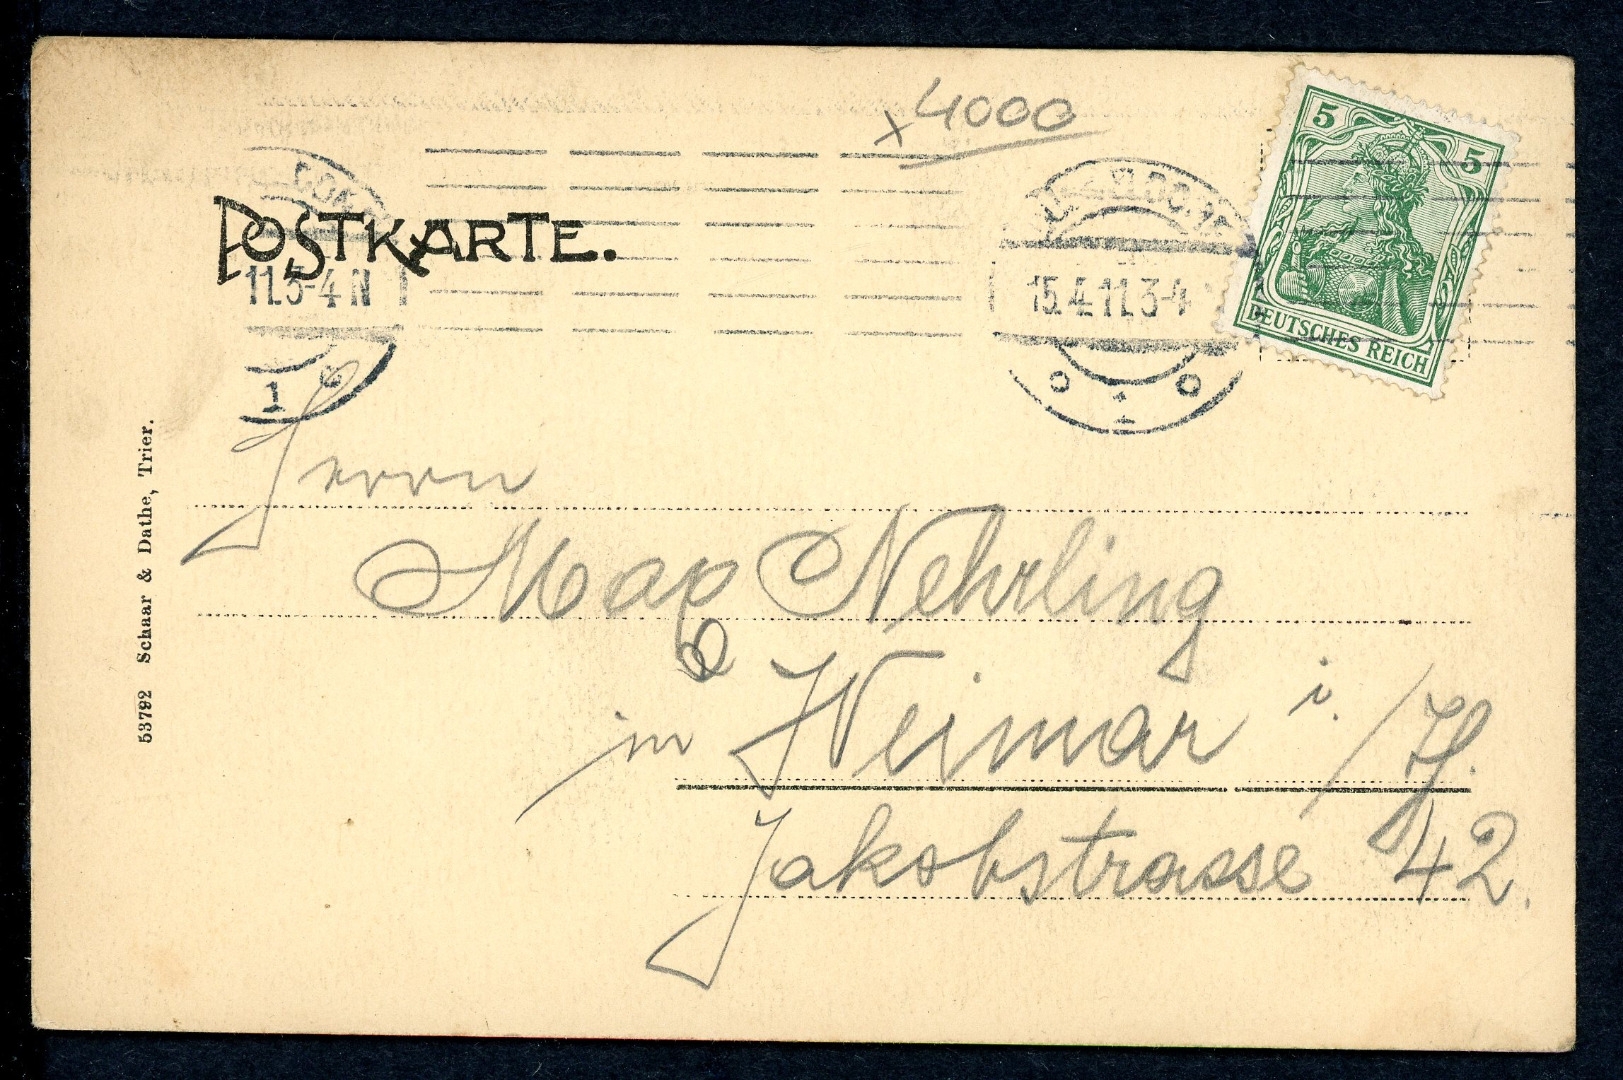 4000
5 5
DEUTSCHES REICH
POSTKARTE.
11.3-4 N
1
15.4.11.3-4
1
Herrn
Max Nehrling
in Weimar i./Th.
Jakobstrasse 42.
53792 Schaar & Dathe, Trier.